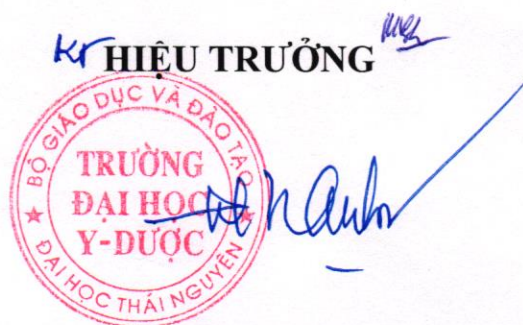 KT HIỆU TRƯỞNG
BỘ GIÁO DỤC VÀ ĐÀO TẠO
TRƯỜNG
ĐẠI HỌC
Y-DƯỢC
ĐẠI HỌC THÁI NGUYÊN